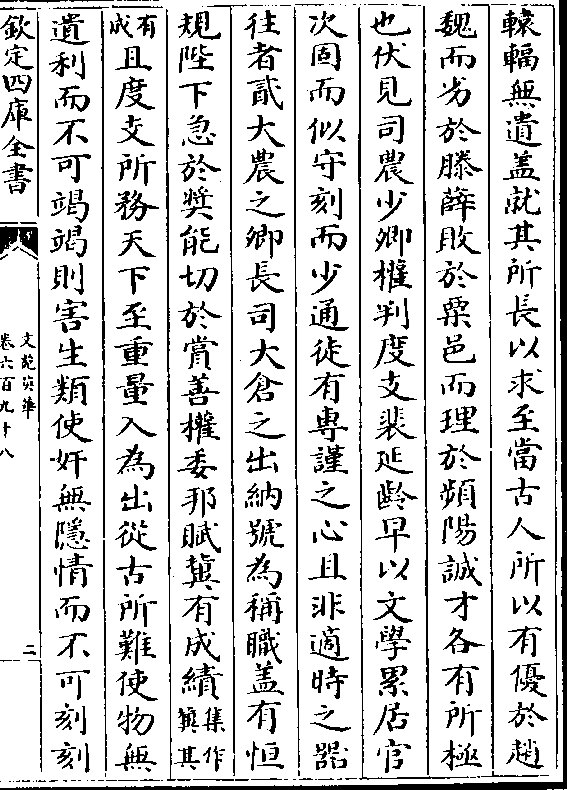 轅輻無遺盖就其所長以求至當古人所以有優於趙
魏而劣於滕薛敗於粟邑而理於頻陽誠才各有所極
也伏見司農少卿權判度支裴延齡早以文學累居官
次固而似守刻而少通徒有專謹之心且非適時之器
往者貳大農之卿長司大倉之出納號為稱職盖有恒
規陛下急於奬能切於賞善權委邦賦冀有成績集作冀其
有成且度支所務天下至重量入為出從古所難使物無
遺利而不可竭竭則害生類使奸無隱情而不可刻刻
欽定四庫全書
文苑英華
卷六百九十八
二